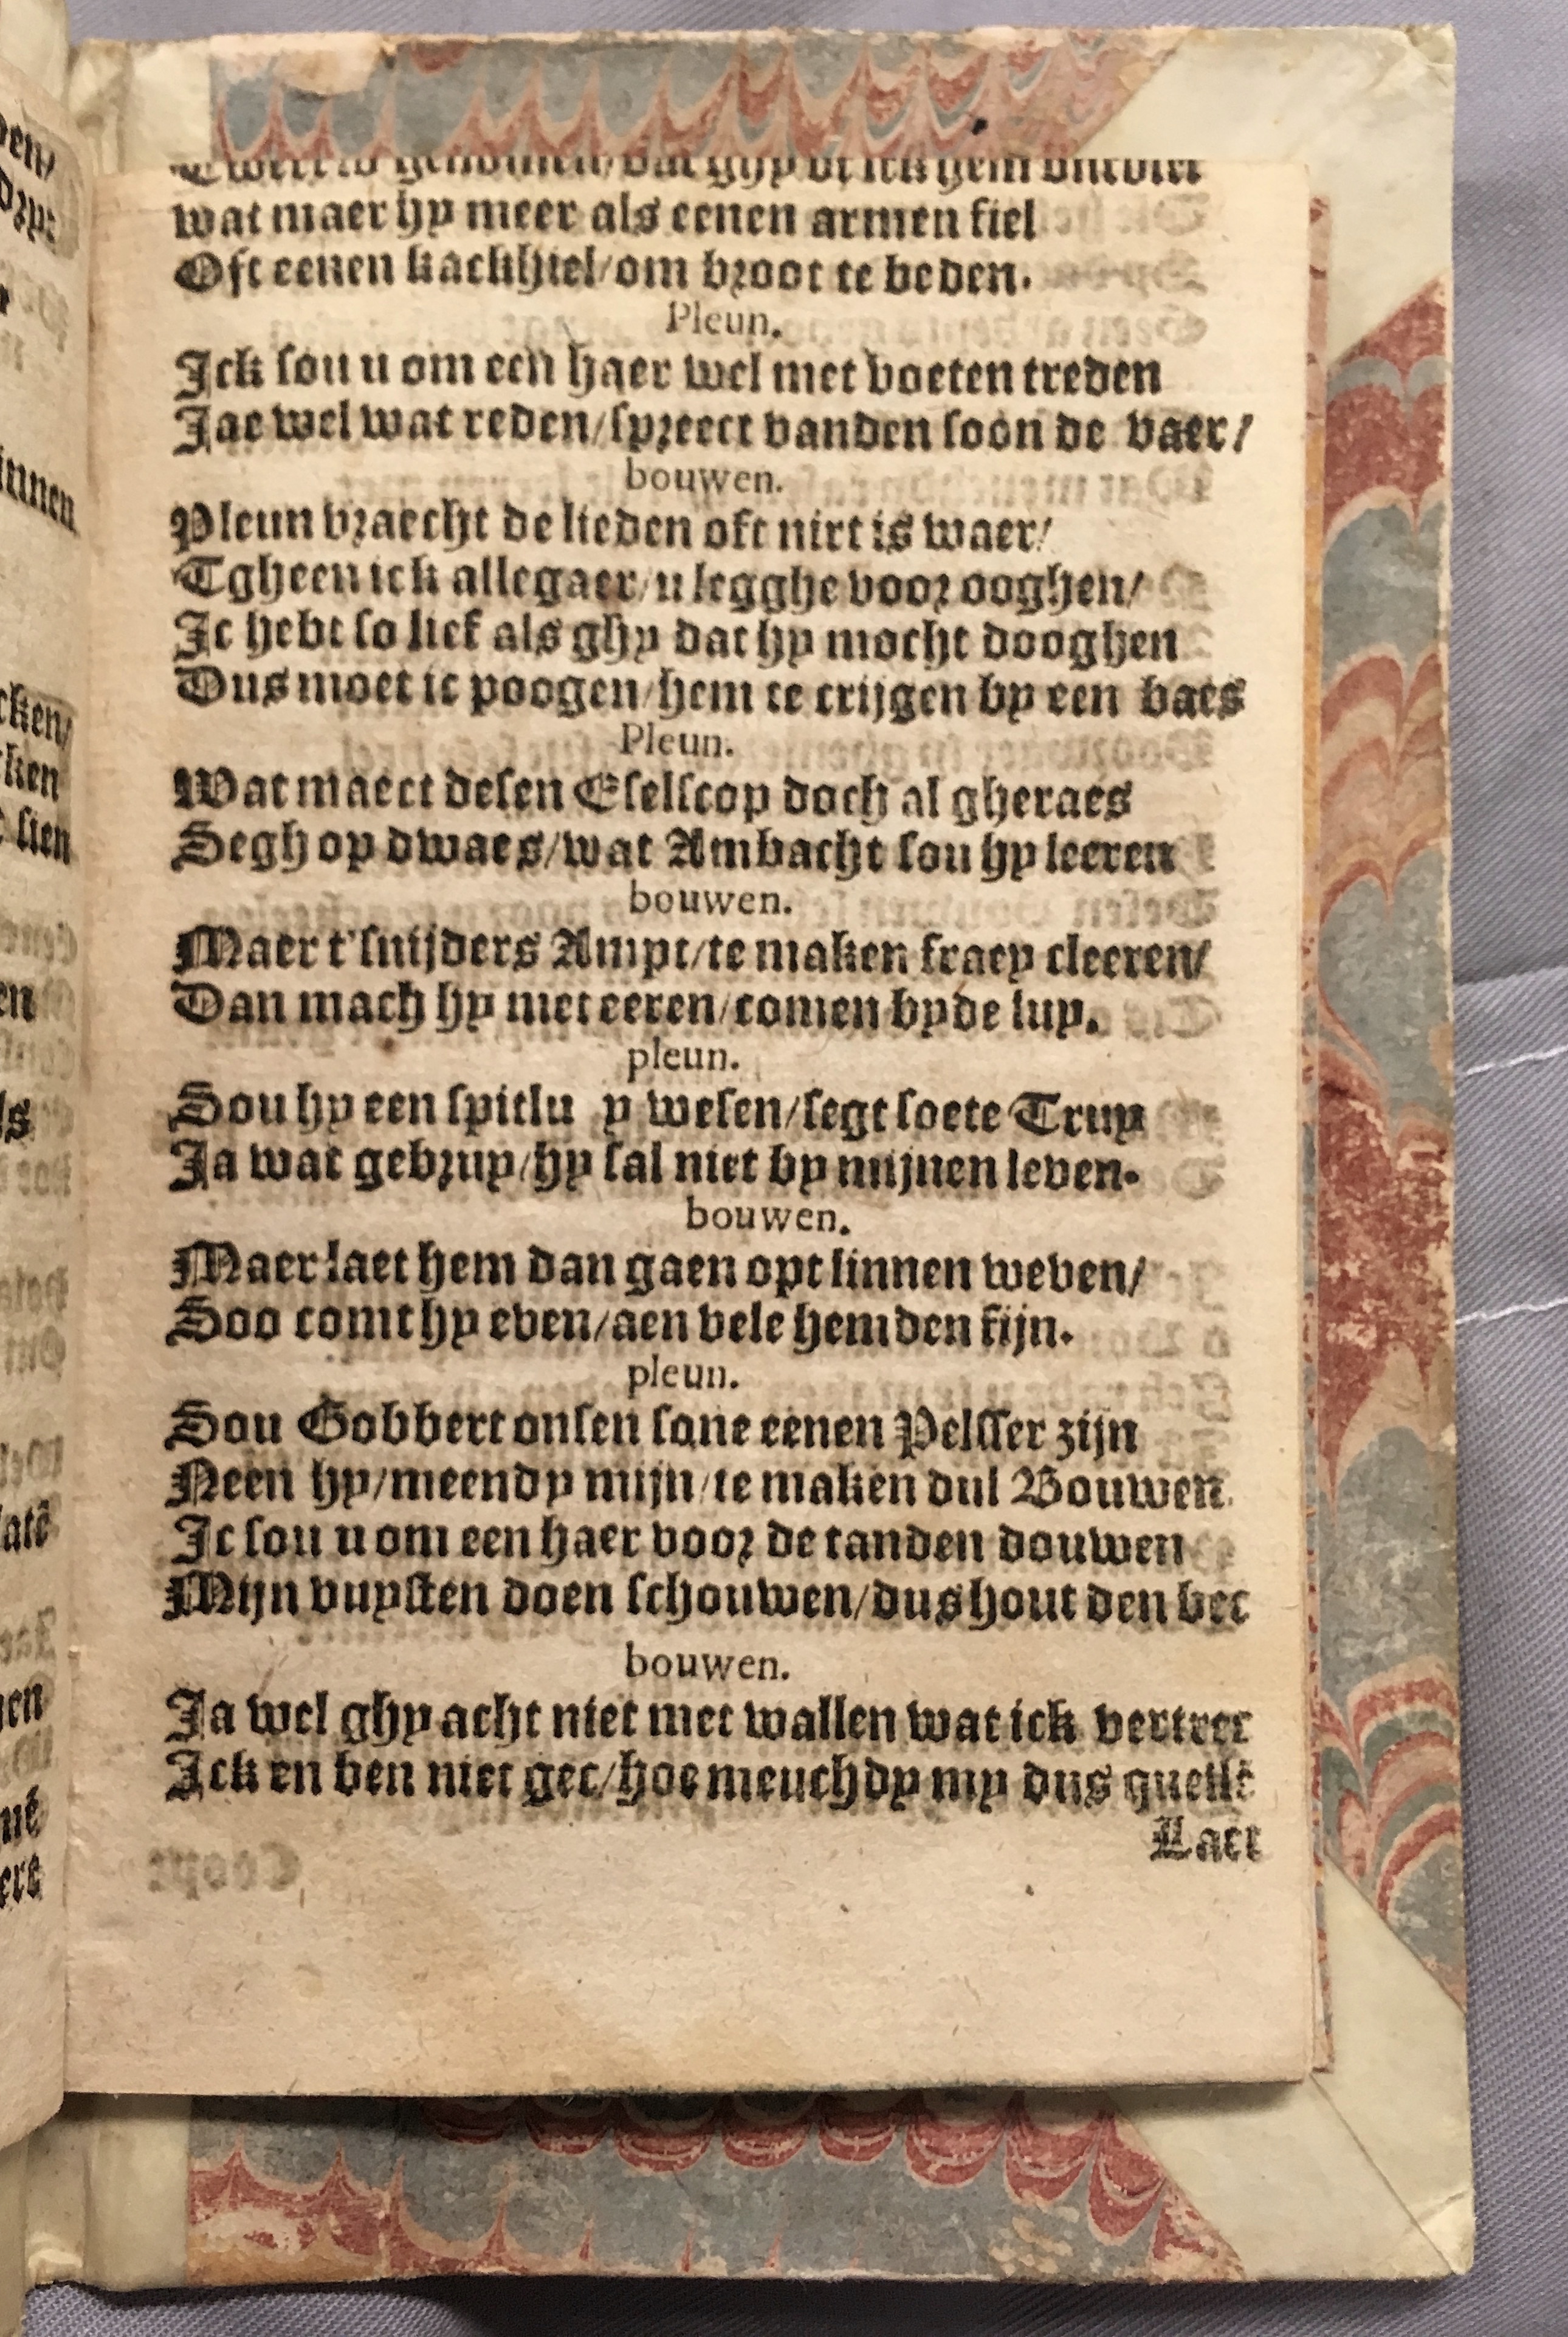 wat maer hy meer als eenen armen fiel
Oft eenen kackhiel/om broot te beden.
Pleun.
Ick sou u om een haer wel met voeten treden
Jae wel wat reden/spreect vanden soon de vaer/
bouwen.
Pleun vraecht de lieden oft niet is waer/
Tgheen ick allegaer/u legghe voor ooghen/
Ic hebt so lief als ghy dat hy mocht dooghen
Dus moet ic poogen/hem te crijgen by een baes
Pleun.
Wat maect desen Eselscop doch al gheraes
Segh op dwaes/wat Ambacht sou hy leeren
bouwen.
Maer t'snijders Ampt/te maken fraey cleeren/
Dan mach hy met eeren/comen byde luy.
pleun.
Sou hy een spitlu y wesen/segt soete Truy
Ja wat gebruy/hy sal niet by mijnen leven.
bouwen.
Maer laet hem dan gaen opt linnen weven/
Soo comt hy even/aen vele hemden fijn.
pleun.
Sou Gobbert onsen sone eenen Pelsser zijn
Neen hy/meendy mijn/te maken dul Bouwen.
Ic sou u om een haer voor de tanden douwen
Mijn vuysten doen schouwen/dus hout den bec
bouwen.
Ja wel ghy acht niet met wallen wat ick vertrec
Ick en ben niet gec/hoe meuchdy my dus quellē
Laet